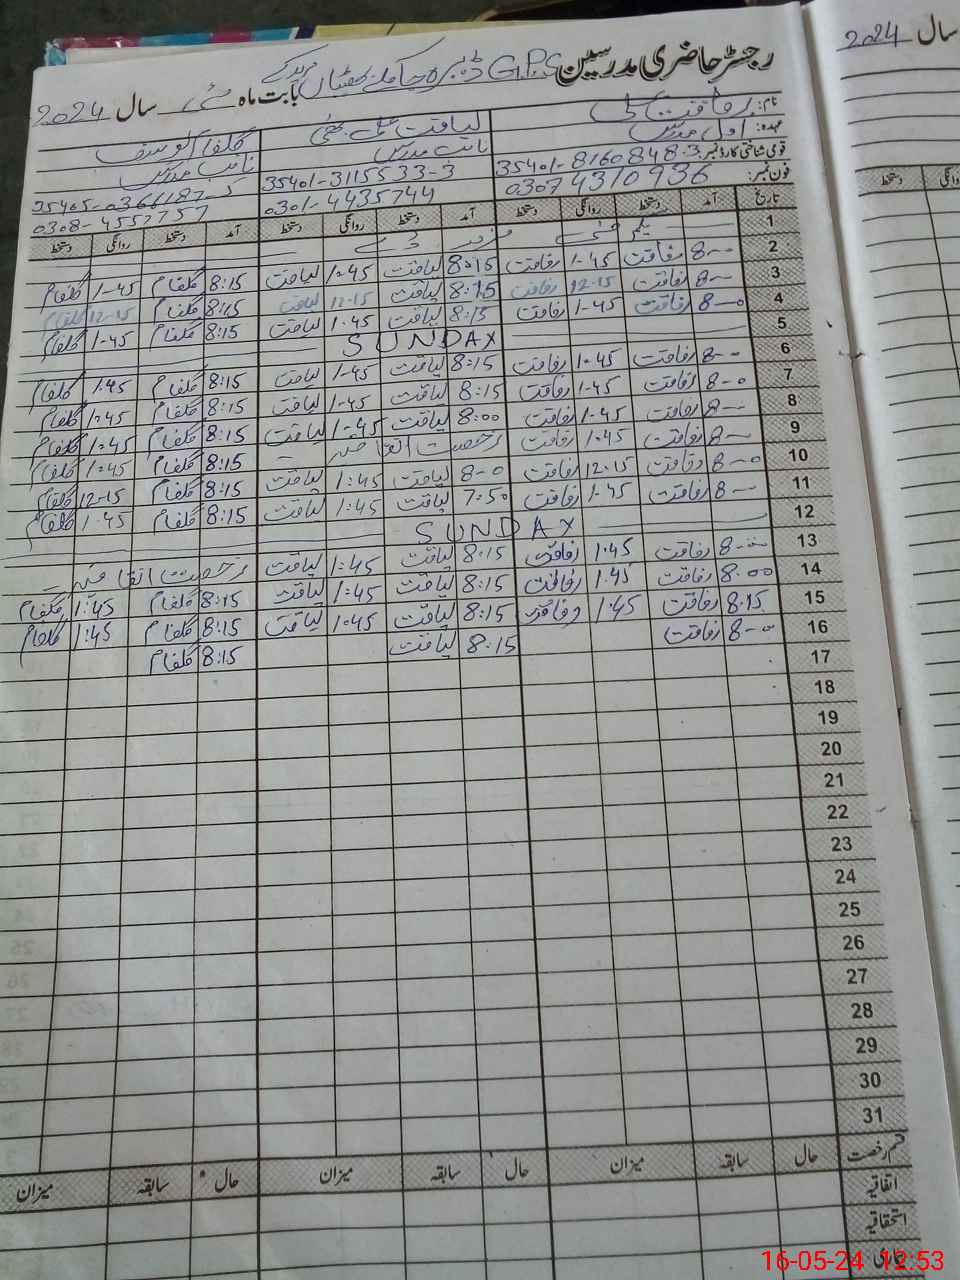 سال 2024
رجسٹر حاضری مدرسین GPS ڈیرہ بابت ماہ مئی سال 2024
نام: رفاقت علی لیاقت علی بھٹی
عہدہ: اول مدرس نائب مدرس نائب مدرس
قومی شناختی کارڈ نمبر: 35401-8160848-3 35401-3115533-3
فون نمبر: 03074310936 0301-4435744 0308-4557757
تاریخ آمد دستخط روانگی دستخط آمد دستخط روانگی دستخط آمد دستخط روانگی دستخط
1 یکم مئی مزدور ڈے
2 8-00 رفاقت 1-45 رفاقت 8:15 لیاقت 1:45 لیاقت 8:15 گلفام 1-45 گلفام
3 8-00 رفاقت 12-15 رفاقت 8:15 لیاقت 12-15 لیاقت 8:15 گلفام 12-15 گلفام
4 8-00 رفاقت 1-45 رفاقت 8:15 لیاقت 1:45 لیاقت 8:15 گلفام 1-45 گلفام
5 SUNDAY
6 8-00 رفاقت 1:45 رفاقت 8:15 لیاقت 1-45 لیاقت 8:15 گلفام 1:45 گلفام
7 8-00 رفاقت 1-45 رفاقت 8:15 لیاقت 1-45 لیاقت 8:15 گلفام 1:45 گلفام
8 8-00 رفاقت 1-45 رفاقت 8:00 لیاقت 1-45 لیاقت 8:15 گلفام 1:45 گلفام
9 8-00 رفاقت 1:45 رفاقت رخصت اتفاقیہ 8:15 گلفام 1:45 گلفام
10 8-00 رفاقت 12:15 رفاقت 8-0 لیاقت 1:45 لیاقت 8:15 گلفام 12-15 گلفام
11 8-00 رفاقت 1:45 رفاقت 7:50 لیاقت 1:45 لیاقت 8:15 گلفام 1:45 گلفام
12 SUNDAY
13 8-00 رفاقت 1:45 رفاقت 8:15 لیاقت 1:45 لیاقت رخصت اتفاقیہ
14 8:00 رفاقت 1:45 رفاقت 8:15 لیاقت 1:45 لیاقت 8:15 گلفام 1:45 گلفام
15 8:15 رفاقت 1:45 رفاقت 8:15 لیاقت 1:45 لیاقت 8:15 گلفام 1:45 گلفام
16 8-00 رفاقت 8:15 لیاقت 8:15 گلفام
17
18
19
20
21
22
23
24
25
26
27
28
29
30
31
قسم رخصت حال سابقہ میزان حال سابقہ میزان حال سابقہ میزان
اتفاقیہ
استحقاقیہ
دستخط روانگی
16-05-24 12:53